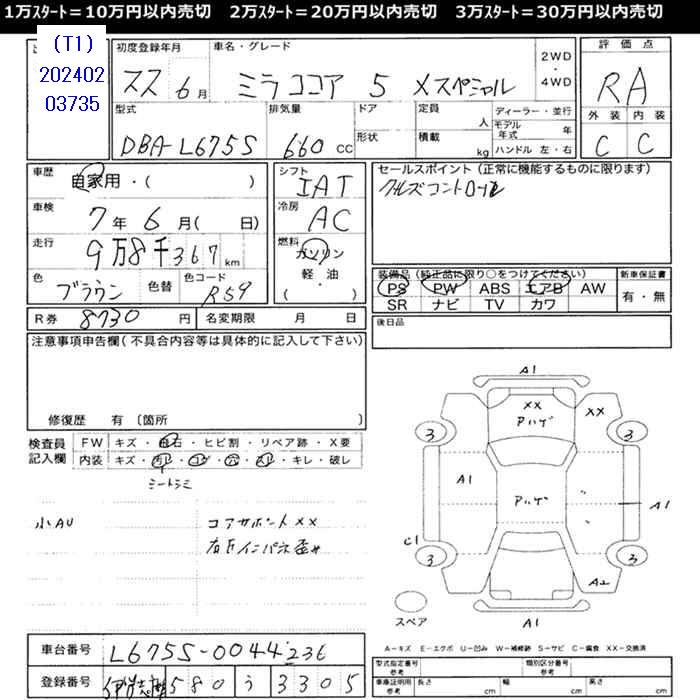 1万ｽﾀｰﾄ＝10万円以内売切　2万ｽﾀｰﾄ＝20万円以内売切　3万ｽﾀｰﾄ＝30万円以内売切
(T1)
202402
03735
初度登録年月　車名・グレード　2WD・4WD　評価点
6月　ミラココア　5　Xスペシャル　RA
外装　内装
C　C
型式　排気量　ドア　定員　人　ディーラー・並行
モデル年式　年
DBA-L675S　660 CC　形状　積載　kg　ハンドル 左・右
車歴　自家用・(　　)　シフト　IAT　セールスポイント（正常に機能するものに限ります）
車検　7年6月(　日)　冷房　AC
走行　9万8千367km　燃料　ガソリン
軽・油
(　　)
色　ブラウン　色替　色コード　R59
装備品（純正品に限り○をつけてください）　新車保証書
PS　PW　ABS　エアB　AW　有・無
SR　ナビ　TV　カワ
R券　8730円　名変期限　月　日　後日品
注意事項申告欄（不具合内容等は具体的に記入して下さい）
修復歴　有〔箇所　　〕
検査員記入欄　FW　キズ・飛石・ヒビ割・リペア跡・X要
内装　キズ・汚レ・コゲ・穴・スレ・キレ・破レ
シートシミ
小AU　コアサポートXX
右Fインパネ歪み
A1
XX　XX
アハゲ
3　3
A1　アハゲ　A1
C1
3　3
A2
スペア　A1
A－キズ　E－エクボ　U－凹み　W－補修跡　S－サビ　C－腐食　XX－交換済
車台番号　L675S-0044236
型式指定番号　類別区分番号
参考
登録番号　580　う　3305
車庫証明用参考　長さ　cm　幅　cm　高さ　cm